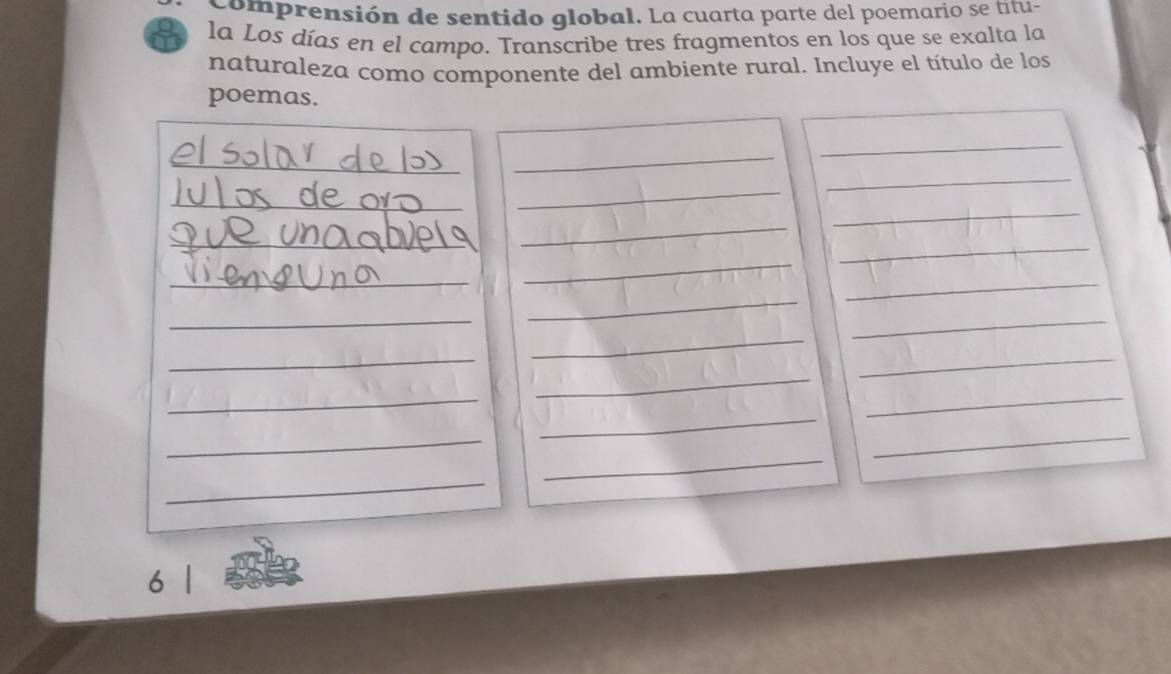 Comprensión de sentido global. La cuarta parte del poemario se titu-
la Los días en el campo. Transcribe tres fragmentos en los que se exalta la
naturaleza como componente del ambiente rural. Incluye el título de los
poemas.
el solar de los
lulos de oro
que una abuela
viemeuna
6 |